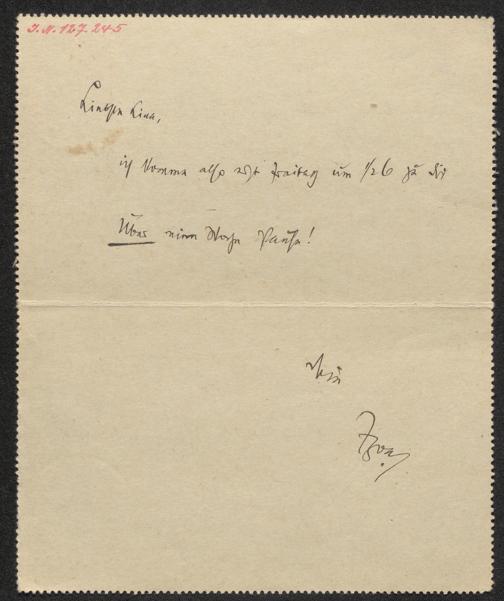 I.N. 127.245
Liebste Lina,
ich komme also erst Freitag um 1/26 zu dir
Über eine Woche Pause!
Dein